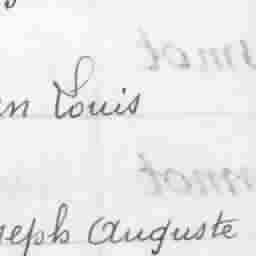 en Louis
seph Auguste